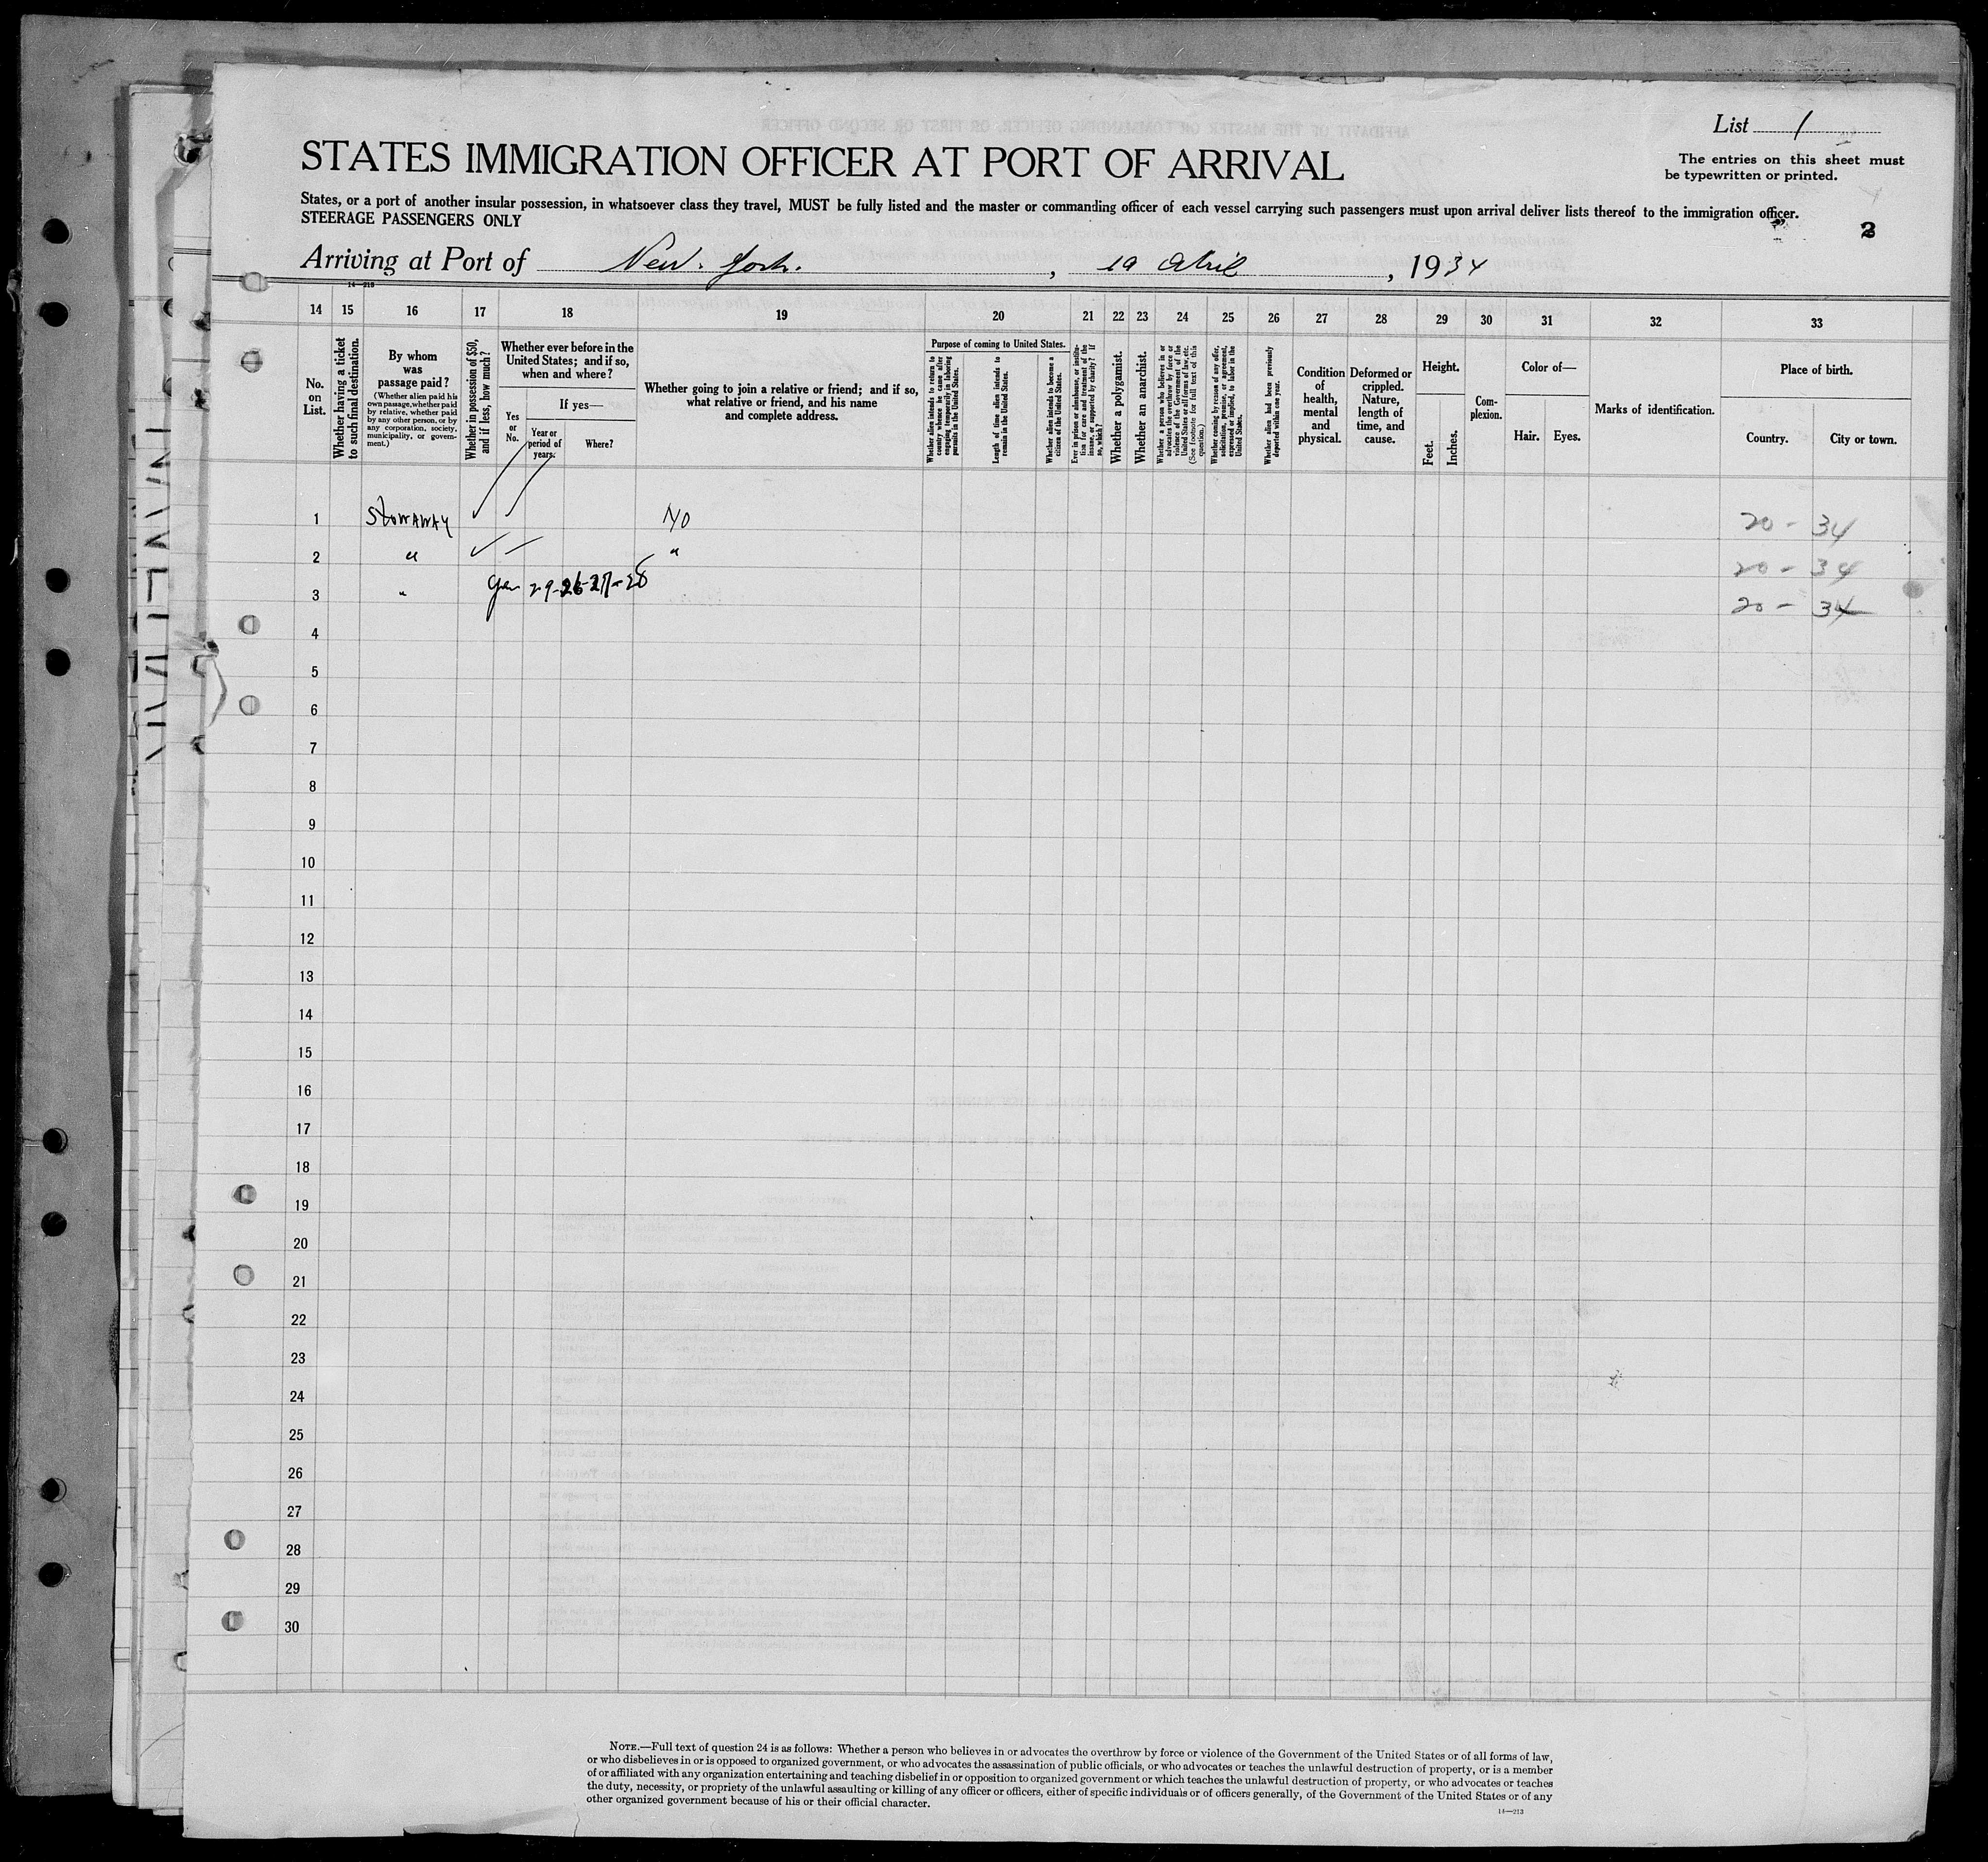 List 1
The entries on this sheet must
be typewritten or printed.
STATES IMMIGRATION OFFICER AT PORT OF ARRIVAL
States, or a port of another insular possession, in whatsoever class they travel, MUST be fully listed and the master or commanding officer of each vessel carrying such passengers must upon arrival deliver lists thereof to the immigration officer.
STEERAGE PASSENGERS ONLY
2
Arriving at Port of New York. , 19 April , 1934
14 15 16 17 18 19 20 21 22 23 24 25 26 27 28 29 30 31 32 33
No. on List.
Whether having a ticket to such final destination.
By whom was passage paid?
(Whether alien paid his own passage, whether paid by relative, whether paid by any other person, or by any corporation, society, municipality, or government.)
Whether in possession of $50, and if less, how much?
Whether ever before in the United States; and if so, when and where?
Yes or No.
If yes—
Year or period of years.
Where?
Whether going to join a relative or friend; and if so, what relative or friend, and his name and complete address.
Purpose of coming to United States.
Whether alien intends to return to country whence he came after engaging temporarily in laboring pursuits in the United States.
Length of time alien intends to remain in the United States.
Whether alien intends to become a citizen of the United States.
Ever in prison or almshouse, or institution for care and treatment of the insane, or supported by charity? If so, which?
Whether a polygamist.
Whether an anarchist.
Whether a person who believes in or advocates the overthrow by force or violence of the Government of the United States or all forms of law, etc. (See footnote for full text of this question.)
Whether coming by reason of any offer, solicitation, promise, or agreement, expressed or implied, to labor in the United States.
Whether alien had been previously deported within one year.
Condition of health, mental and physical.
Deformed or crippled. Nature, length of time, and cause.
Height.
Feet.
Inches.
Complexion.
Color of—
Hair.
Eyes.
Marks of identification.
Place of birth.
Country.
City or town.
1 STOWAWAY NO 20 - 34
2 " " 20 - 34
3 " 20 - 34
4
5
6
7
8
9
10
11
12
13
14
15
16
17
18
19
20
21
22
23
24
25
26
27
28
29
30
NOTE.—Full text of question 24 is as follows: Whether a person who believes in or advocates the overthrow by force or violence of the Government of the United States or of all forms of law,
or who disbelieves in or is opposed to organized government, or who advocates the assassination of public officials, or who advocates or teaches the unlawful destruction of property, or is a member
of or affiliated with any organization entertaining and teaching disbelief in or opposition to organized government or which teaches the unlawful destruction of property, or who advocates or teaches
the duty, necessity, or propriety of the unlawful assaulting or killing of any officer or officers, either of specific individuals or of officers generally, of the Government of the United States or of any
other organized government because of his or their official character.
14—213